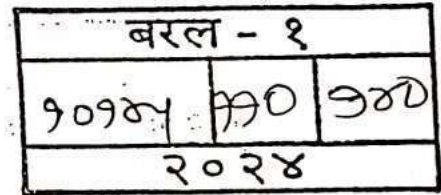 बरल - १
१०१४५ ११० १४०
२०२४